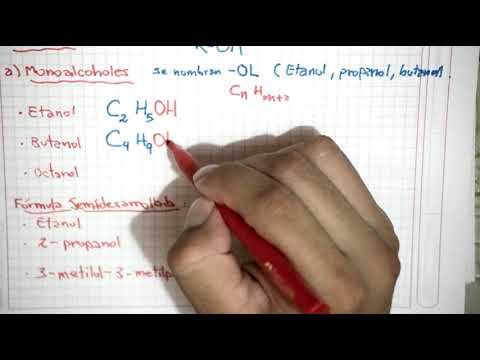 R-OH
a) Monoalcoholes se nombran -OL (Etanol, propanol, butanol.
Cn H2n+2
• Etanol C2 H5OH
• Butanol C4 H9O
• Octanol
Fórmula Semidesarrollada:
• Etanol
• 2-propanol
• 3-metilol-3-metilp